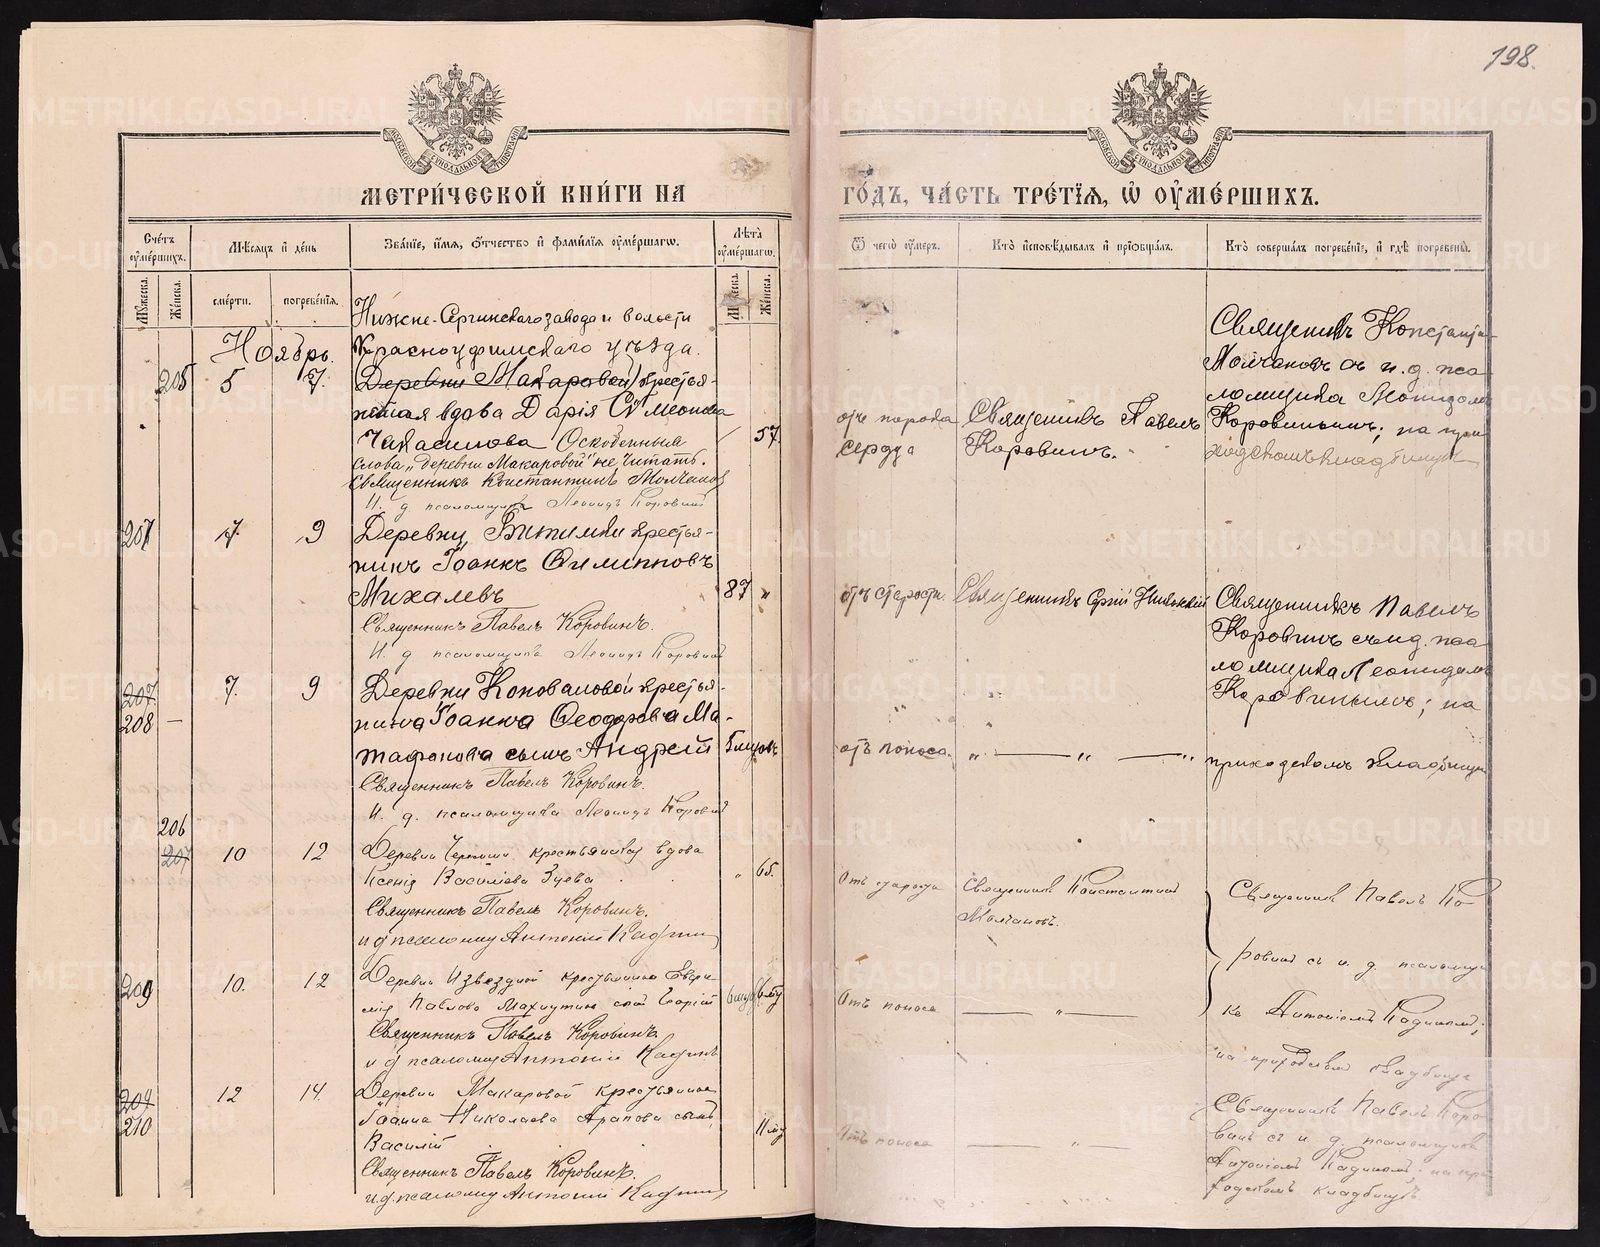 198.
МЕТРИ́ЧЕСКОЙ КНИ́ГИ НА
ГО́ДЪ, ЧА́СТЬ ТРЕ́ТЇЯ, Ѡ҆ ОУ҆МЕ́РШИХЪ.
Счетъ оумершихъ.
Мужеска.
Женска.
Мѣсяцъ и день
смерти.
погребенїя.
Званїе, имя, отчество и фамилїя оумершагѡ.
Лѣта оумершагѡ.
Мужеска.
Женска.
Ѿ чегѡ оумеръ.
Кто исповѣдывалъ и прїобщалъ.
Кто совершалъ погребенїе, и гдѣ погребены.
Ноябрь.
Нижне-Сергинскаго завода и волости
Красноуфимскаго уѣзда.
205 5 7. Деревни Макаровой крестьян-
ская вдова Дарія Симеонова
Чекасилова Оскобленныя 57
слова „деревни Макаровой" не читать.
Священникъ Константинъ Молчановъ
И. д. псаломщика Леонидъ Коровинъ
отъ порока
сердца
Священникъ Павелъ
Коровинъ.
Священникъ Константинъ
Молчановъ съ и. д. пса
ломщика Леонидомъ
Коровинымъ; на при
ходскомъ кладбищѣ
207 7. 9 Деревни крестья-
нинъ Іоаннъ Филипповъ
Михалевъ 87 „
Священникъ Павелъ Коровинъ.
И. д. псаломщика Леонидъ Коровинъ
отъ старости.
Священникъ Сергій
Священникъ Павелъ
Коровинъ съ и. д. пса
ломщика Леонидомъ
Коровинымъ; на
приходскомъ кладбищѣ
207.
208 — 7. 9 Деревни Коноваловой крестья-
нина Іоанна Ѳеодорова Ма-
тафонова сынъ Андрей 5 мѣсяц.
Священникъ Павелъ Коровинъ.
И. д. псаломщика Леонидъ Коровинъ
отъ поноса.
„ — „ — „
206
207 10 12 Деревни крестьянская вдова
Ксенія Василіева Зуева „ 65.
Священникъ Павелъ Коровинъ.
и д псаломщ Антоній Кадчин
Отъ старости
Священникъ Константинъ
Молчановъ.
Священникъ Павелъ Ко
ровинъ съ и. д. псаломщи
ка Антоніемъ
на приходскомъ кладбищѣ
209 10. 12 Деревни Извездной крестьянина
Павлова сынъ Георгій
Священникъ Павелъ Коровинъ
и д псаломщ Антоній
Отъ поноса
— „ —
209
210 12 14. Деревни Макаровой крестьянина
Іоанна Николаева Арапова сынъ
Василій 11 мѣс
Священникъ Павелъ Коровинъ.
и. д. псаломщ Антоній
Отъ поноса
— „ —
Священникъ Павелъ Коро
винъ съ и. д. псаломщика
Антоніемъ на при
ходскомъ кладбищѣ
METRIKI.GASO-URAL.RU